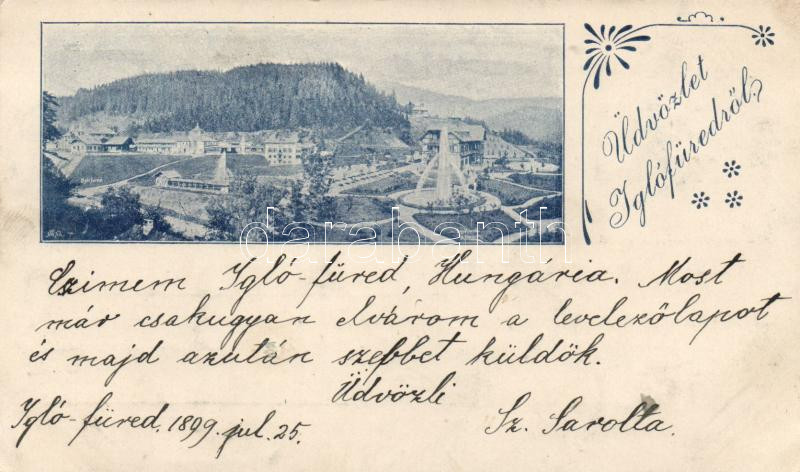 Üdvözlet
Iglófüredről
darabanth
Czimem Igló-füred, Hungária. Most
már csakugyan elvárom a levelezőlapot
és majd azután szebbet küldök.
Üdvözli
Igló-füred. 1899. jul. 25. Sz. Sarolta.